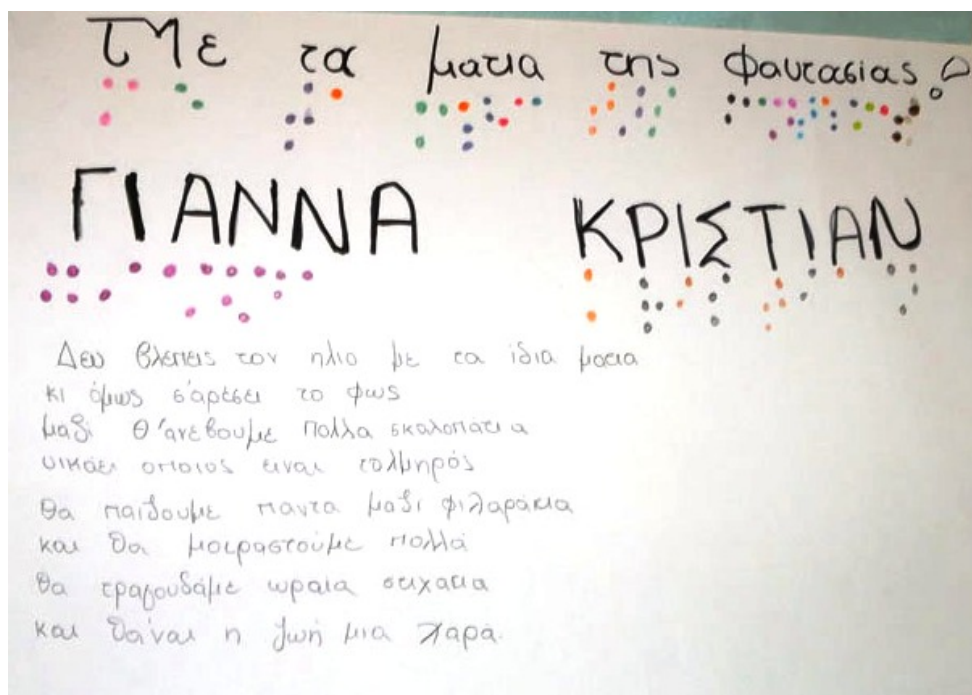 Με τα ματια της φαντασιας!
ΓΙΑΝΝΑ ΚΡΙΣΤΙΑΝ
Δεν βλεπεις τον ηλιο με τα ίδια ματια
κι όμως σ'αρέσει το φως
μαζί θ'ανέβουμε πολλα σκαλοπάτια
νικάει οποιος ειναι τολμηρός
θα παίζουμε παντα μαζί φιλαράκια
και θα μοιραστούμε πολλά
θα τραγουδάμε ωραια στιχακια
και θα'ναι η ζωή μια χαρά.